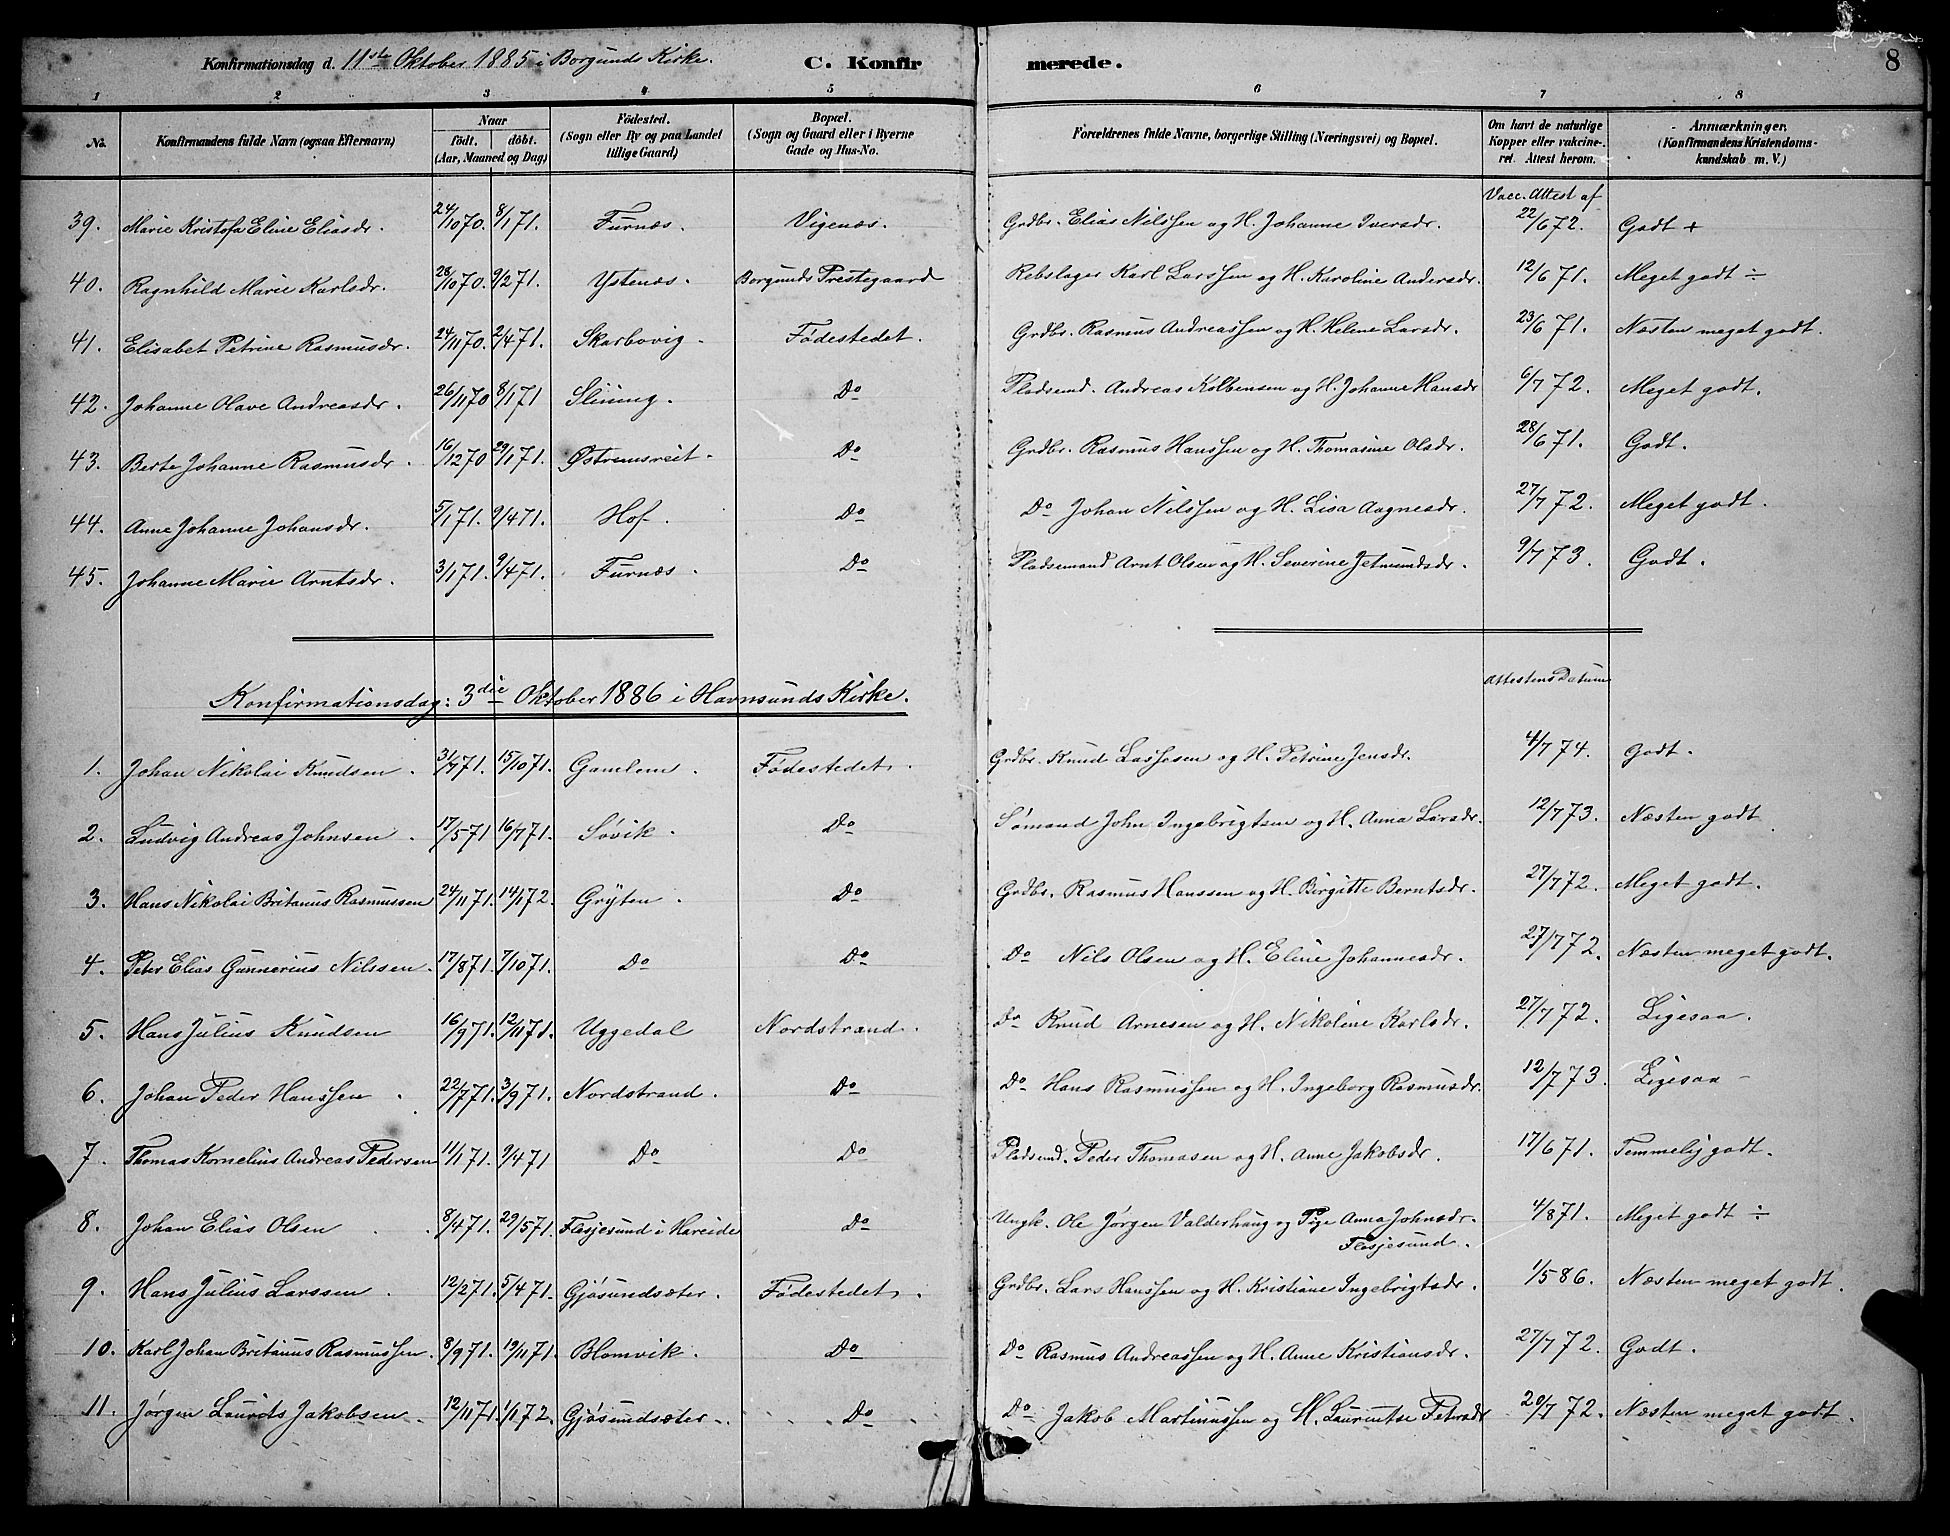 Konfirmationsdag d. 11ste Oktober 1885 i Borgunds Kirke. C. Konfirmerede. 8
1 2 3 4 5 6 7 8
No. Konfirmandens fulde Navn (ogsaa Efternavn) Naar født. døbt. (Aar, Maaned og Dag) Fødested. (Sogn eller By og paa Landet tillige Gaard) Bopæl. (Sogn og Gaard eller i Byerne Gade og Hus-No. Forældrenes fulde Navne, borgerlige Stilling (Næringsvei) og Bopæl. Om havt de naturlige Kopper eller vakcineret. Attest herom. Anmærkninger. (Konfirmandens Kristendomskundskab m. V.)
Vacc. Attest af
39. Marie Kristofa Eline Eliasdr. 24/10 70. 8/1 71. Furnæs. Vigenæs. Grdbr. Elias Nilssen og H. Johanne Iversdr. 22/6 72. Godt +
40. Ragnhild Marie Karlsdr. 28/10 70. 9/2 71. Ystenæs. Borgunds Prestegaard Rebslager Karl Larssen og H. Karoline Andersdr. 12/6 71. Meget godt ÷
41. Elisabet Petrine Rasmusdr. 24/11 70. 2/4 71. Skarbovig. Fødestedet. Grdbr. Rasmus Andreassen og H. Helene Larsdr. 23/6 71. Næsten meget godt.
42. Johanne Olave Andreasdr. 26/11 70 8/1 71 Slinning. Do Pladsmd. Andreas Kolbensen og H. Johanne Hansdr 6/7 72. Meget godt.
43. Berte Johanne Rasmusdr. 16/12 70 29/1 71. Østremsreit. Do Grdbr. Rasmus Hanssen og H. Thomasine Olsdr. 28/6 71. Godt.
44. Anne Johanne Johansdr. 5/1 71. 9/4 71. Hof. Do Do Johan Nilssen og H. Lisa Aagnesdr. 27/7 72. Meget godt.
45. Johanne Marie Arntsdr. 3/1 71. 9/4 71. Furnæs. Do Pladsemand Arnt Olsen og H. Severine Jetmundsdr. 9/7 73. Godt.
Konfirmationsdag: 3die Oktober 1886 i Havnsunds Kirke. Attestens Datum
1. Johan Nikolai Knudsen. 31/7 71. 15/10 71. Gamlem. Fødestedet. Grdbr. Knud Lassesen og H. Petrine Jensdr. 4/7 74. Godt.
2. Ludvig Andreas Johnsen. 17/5 71 16/7 71. Søvik. Do Sømand John Ingebrigtsen og H. Anna Larsdr. 12/7 73. Næsten godt
3. Hans Nikolai Britanus Rasmussen 24/11 71. 14/1 72. Grÿten. Do Grdbr. Rasmus Hanssen og H. Birgitte Berntsdr. 27/7 72. Meget godt.
4. Peter Elias Gunnerius Nilssen. 17/8 71. 7/10 71. Do Do Do Nils Olsen og H. Eline Johannesdr. 27/7 72. Næsten meget godt.
5. Hans Julius Knudsen 16/9 71. 12/11 71. Uggedal Nordstrand. Do Knud Arnesen og H. Nikoline Karlsdr. 27/7 72. Ligesaa.
6. Johan Peder Hanssen. 22/7 71. 3/9 71. Nordstrand. Do Do Hans Rasmussen og H. Ingeborg Rasmusdr. 12/7 73. Ligesaa
7. Thomas Kornelius Andreas Pedersen 11/1 71. 9/4 71 Do Do Pladsmd. Peder Thomassen og H. Anne Jakobsdr. 17/6 71. Temmelig godt.
8. Johan Elias Olsen 8/4 71. 29/5 71. Flesjesund i Hareide Do Ungk. Ole Jørgen Valderhaug og Pige Anna Johnsdr. Flesjesund. 4/8 71. Meget godt ÷
9. Hans Julius Larssen. 12/2 71. 5/4 71. Gjøsundsæter. Fødestedet. Grdbr. Lars Hanssen og H. Kristiane Ingebrigtsdr. 1/5 86. Næsten meget godt.
10. Karl Johan Britanus Rasmussen. 8/9 71. 19/11 71. Blomvik. Do Do Rasmus Andreassen og H. Anne Kristiansdr. 27/7 72. Godt.
11. Jørgen Laurits Jakobsen. 12/11 71. 1/1 72. Gjøsundsæter. Do Do Jakob Martinussen og H. Laurentse Petersdr 20/7 72. Næsten meget godt.